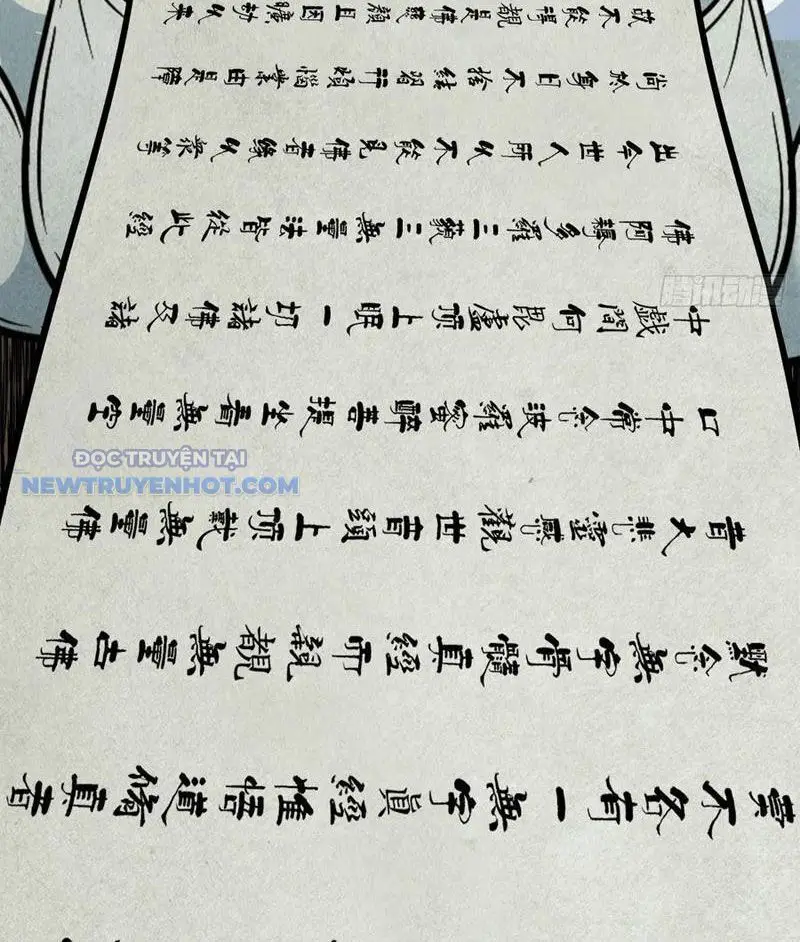 實不名有一無字眞經惟悟道修真者
默念無字骨髓真經而親覩無量古佛
昔大悲靈感觀世音頭上頂戴無量佛
口中常念波羅蜜醉菩提坐看無量空
中戲問何毘盧頂上眠一切諸佛及諸
佛阿耨多羅三藐三無量法皆從此經
出今世人所以不能見佛者緣以衆等
尚於身日不捨結習行煩惱業由是障
故不能得覩是佛慈顏且因曠劫以來
腾讯动漫
ĐỌC TRUYỆN TẠI
NEWTRUYENHOT.COM